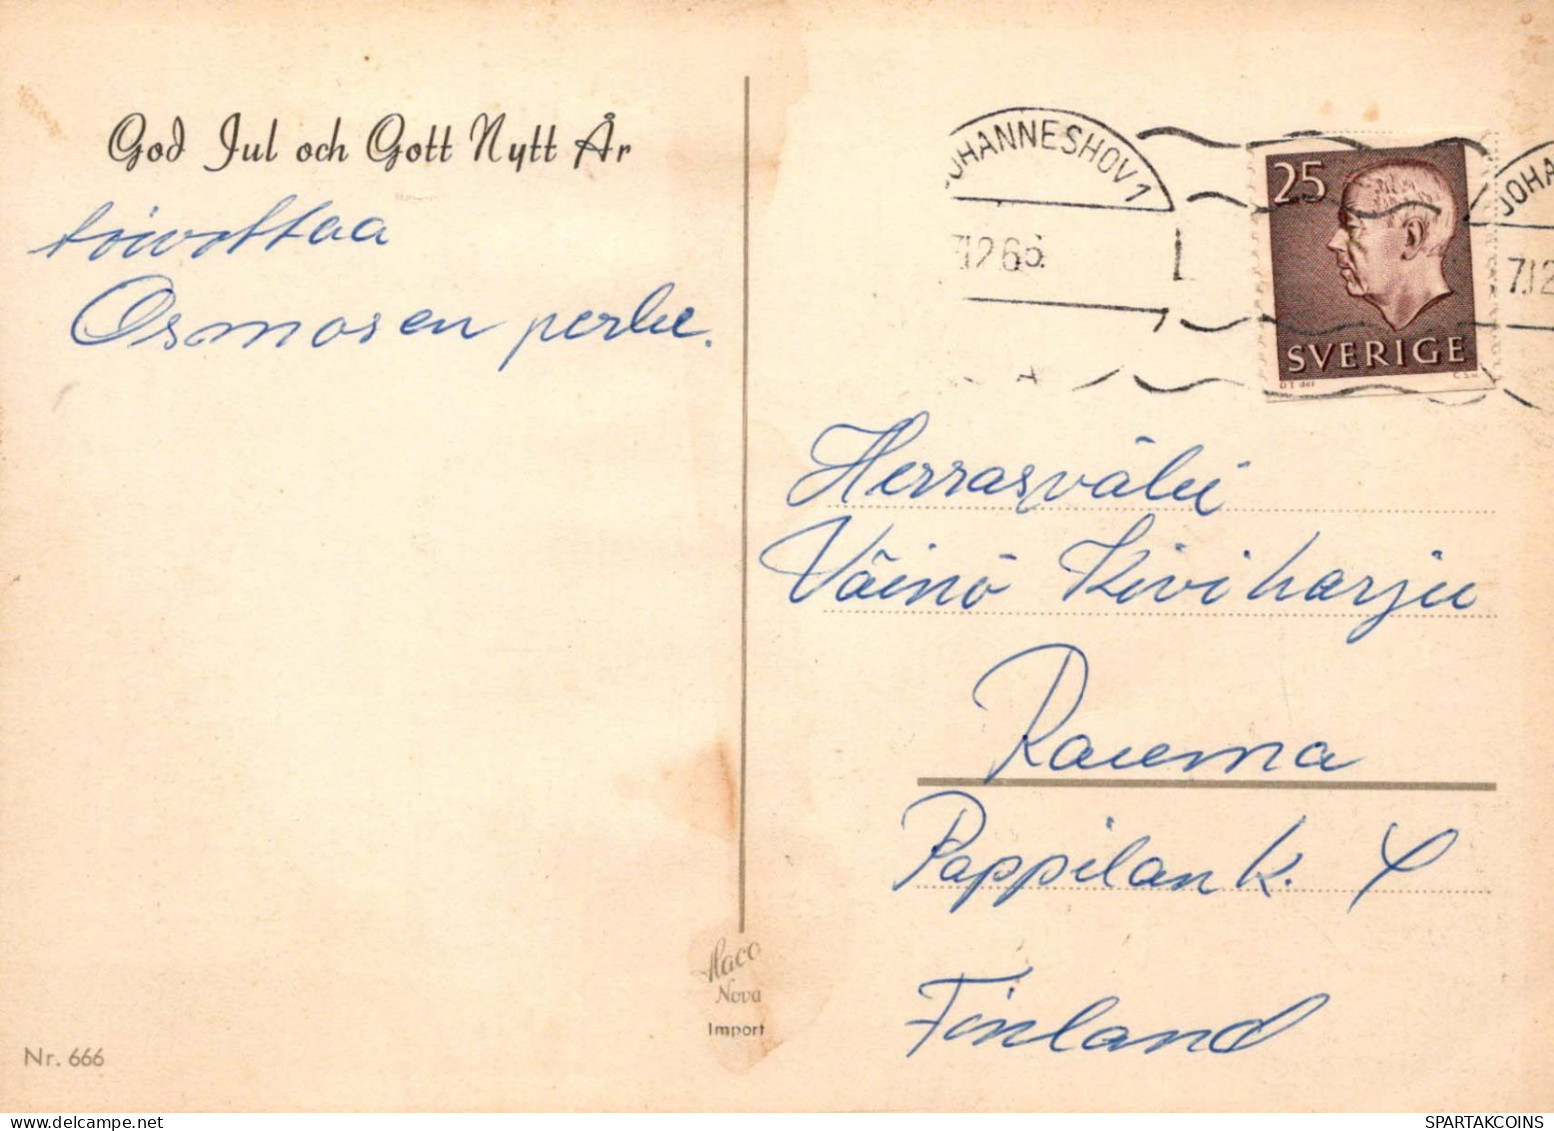 God Jul och Gott Nytt År
toivottaa
Osmosen perhe.
JOHANNESHOV 1
7.12.6
25
SVERIGE
DT del
C.S.H
JOHA
7.12
Herrasväki
Väinö Kiviharju
Rauma
Pappilank. 4
Finland
Haco
Nova
Import
Nr. 666
SPARTAKCOINS